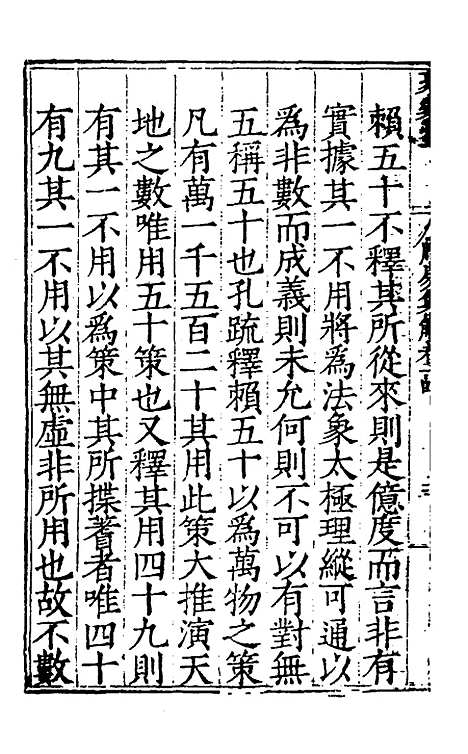 賴五十不釋其所從來則是億度而言非有
實據其一不用將爲法象太極理縱可通以
爲非數而成義則未允何則不可以有對無
五稱五十也孔䟽釋賴五十以爲萬物之策
凡有萬一千五百二十其用此策大推演天
地之數唯用五十策也又釋其用四十九則
有其一不用以爲策中其所揲蓍者唯四十
有九其一不用以其無虛非所用也故不數